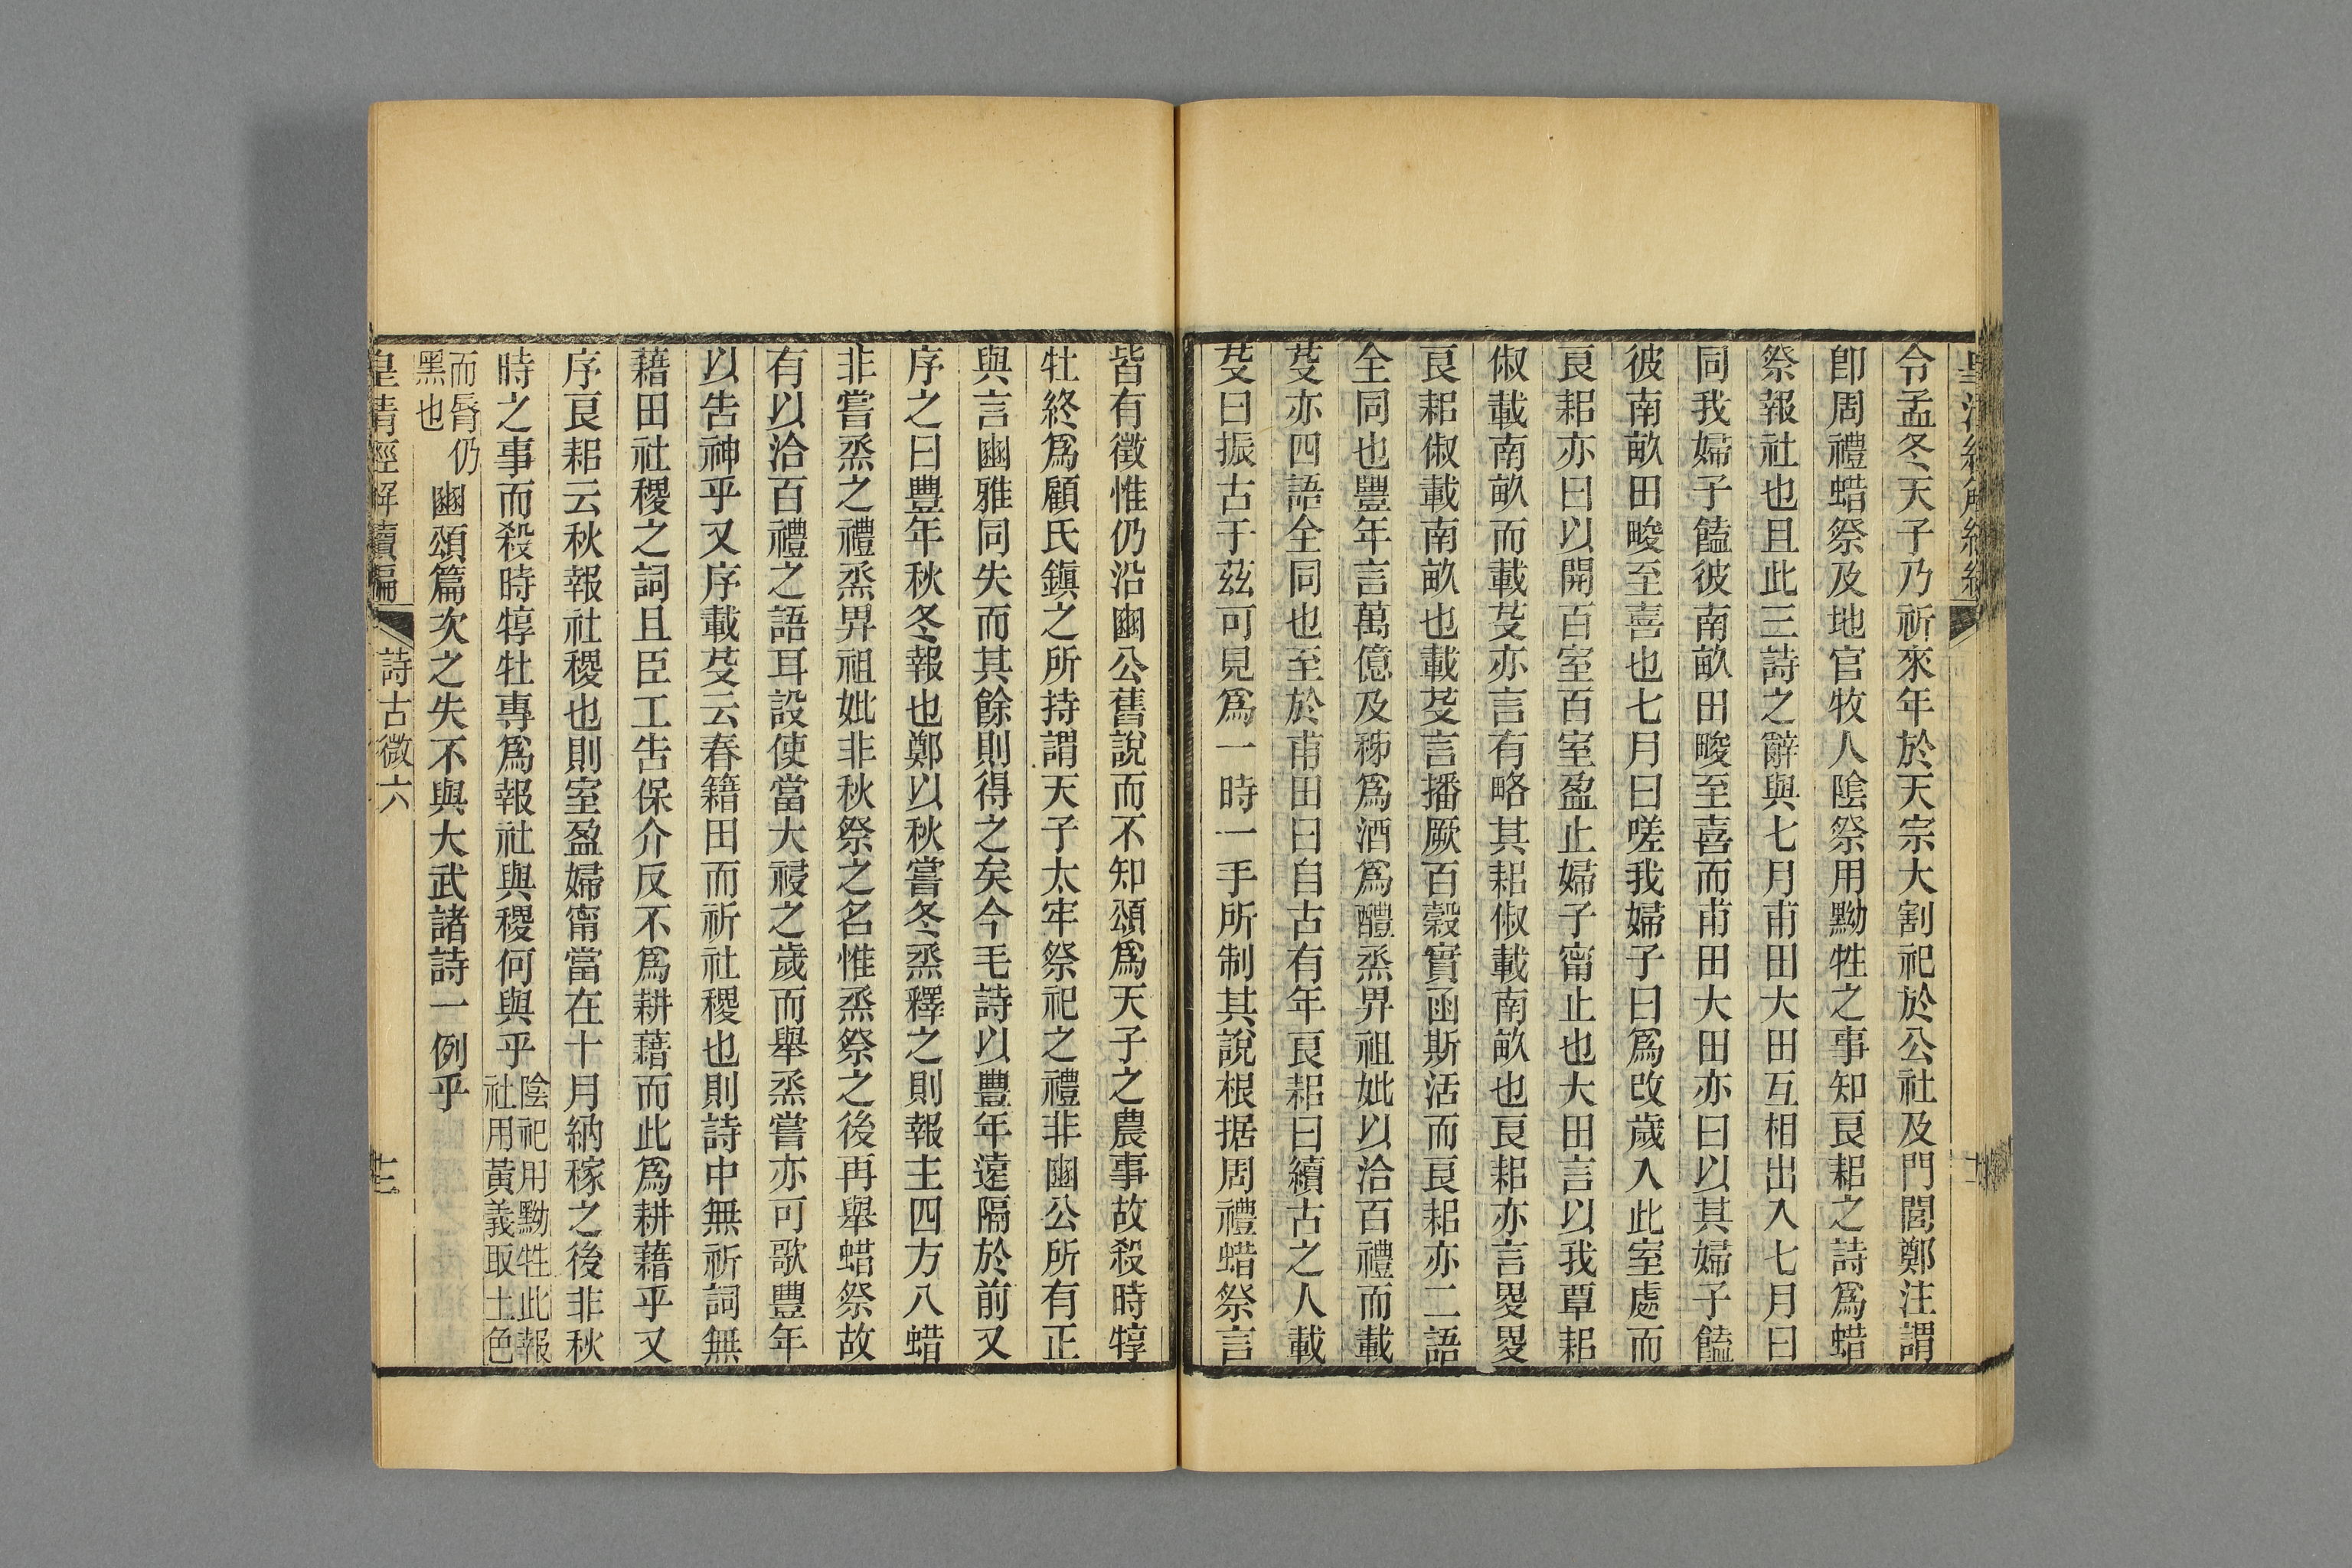 令孟冬天子乃祈來年於天宗大割祀於公社及門閭鄭注謂
卽周禮蜡祭及地官牧人陰祭用黝牲之事知良耜之詩爲蜡
祭報社也且此三詩之辭與七月甫田大田互相出入七月曰
同我婦子饁彼南畝田畯至喜而甫田大田亦曰以其婦子饁
彼南畝田畯至喜也七月曰嗟我婦子曰爲改歲入此室處而
良耜亦曰以開百室百室盈止婦子甯止也大田言以我覃耜
俶載南畝而載芟亦言有略其耜俶載南畝也良耜亦言畟畟
良耜俶載南畝也載芟言播厥百穀實函斯活而良耜亦二語
全同也豐年言萬億及秭爲酒爲醴烝畀祖妣以洽百禮而載
芟亦四語全同也至於甫田曰自古有年良耜曰續古之人載
芟曰振古于茲可見爲一時一手所制其說根据周禮蜡祭言
皆有徵惟仍沿豳公舊說而不知頌爲天子之農事故殺時犉
牡終爲顧氏鎮之所持謂天子太牢祭祀之禮非豳公所有正
與言豳雅同失而其餘則得之矣今毛詩以豐年遠隔於前又
序之曰豐年秋冬報也鄭以秋嘗冬烝釋之則報主四方八蜡
非嘗烝之禮烝畀祖妣非秋祭之名惟烝祭之後再舉蜡祭故
有以洽百禮之語耳設使當大祲之歲而舉烝嘗亦可歌豐年
以告神乎又序載芟云春籍田而祈社稷也則詩中無祈詞無
藉田社稷之詞且臣工告保介反不爲耕藉而此爲耕藉乎又
序良耜云秋報社稷也則室盈婦甯當在十月納稼之後非秋
時之事而殺時犉牡專爲報社與稷何與乎陰祀用黝牲此報社用黃義取土色
而脣仍黑也豳頌篇次之失不與大武諸詩一例乎
皇清經解續編 詩古微六 十二